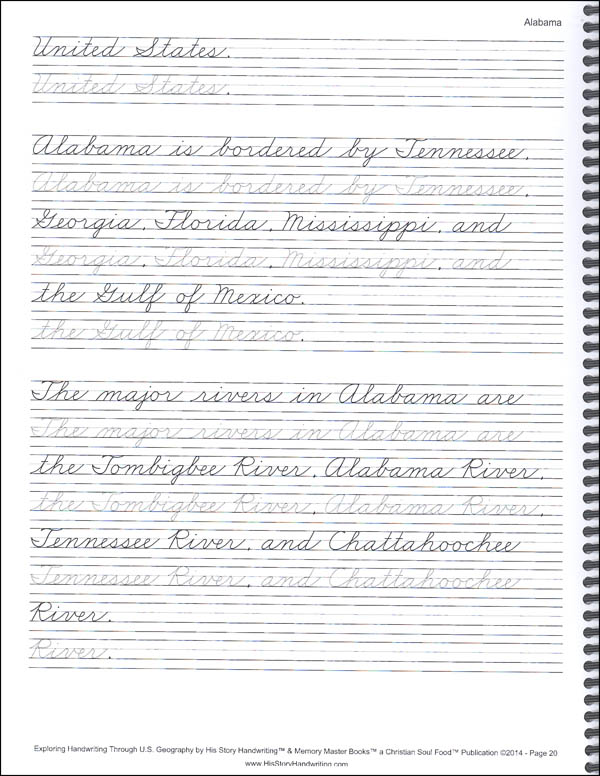 Alabama
United States.
United States.
Alabama is bordered by Tennessee,
Alabama is bordered by Tennessee,
Georgia, Florida, Mississippi, and
Georgia, Florida, Mississippi, and
the Gulf of Mexico.
the Gulf of Mexico.
The major rivers in Alabama are
The major rivers in Alabama are
the Tombigbee River, Alabama River,
the Tombigbee River, Alabama River,
Tennessee River, and Chattahoochee
Tennessee River, and Chattahoochee
River.
River.
Exploring Handwriting Through U.S. Geography by His Story Handwriting™ & Memory Master Books™ a Christian Soul Food™ Publication ©2014 - Page 20
www.HisStoryHandwriting.com